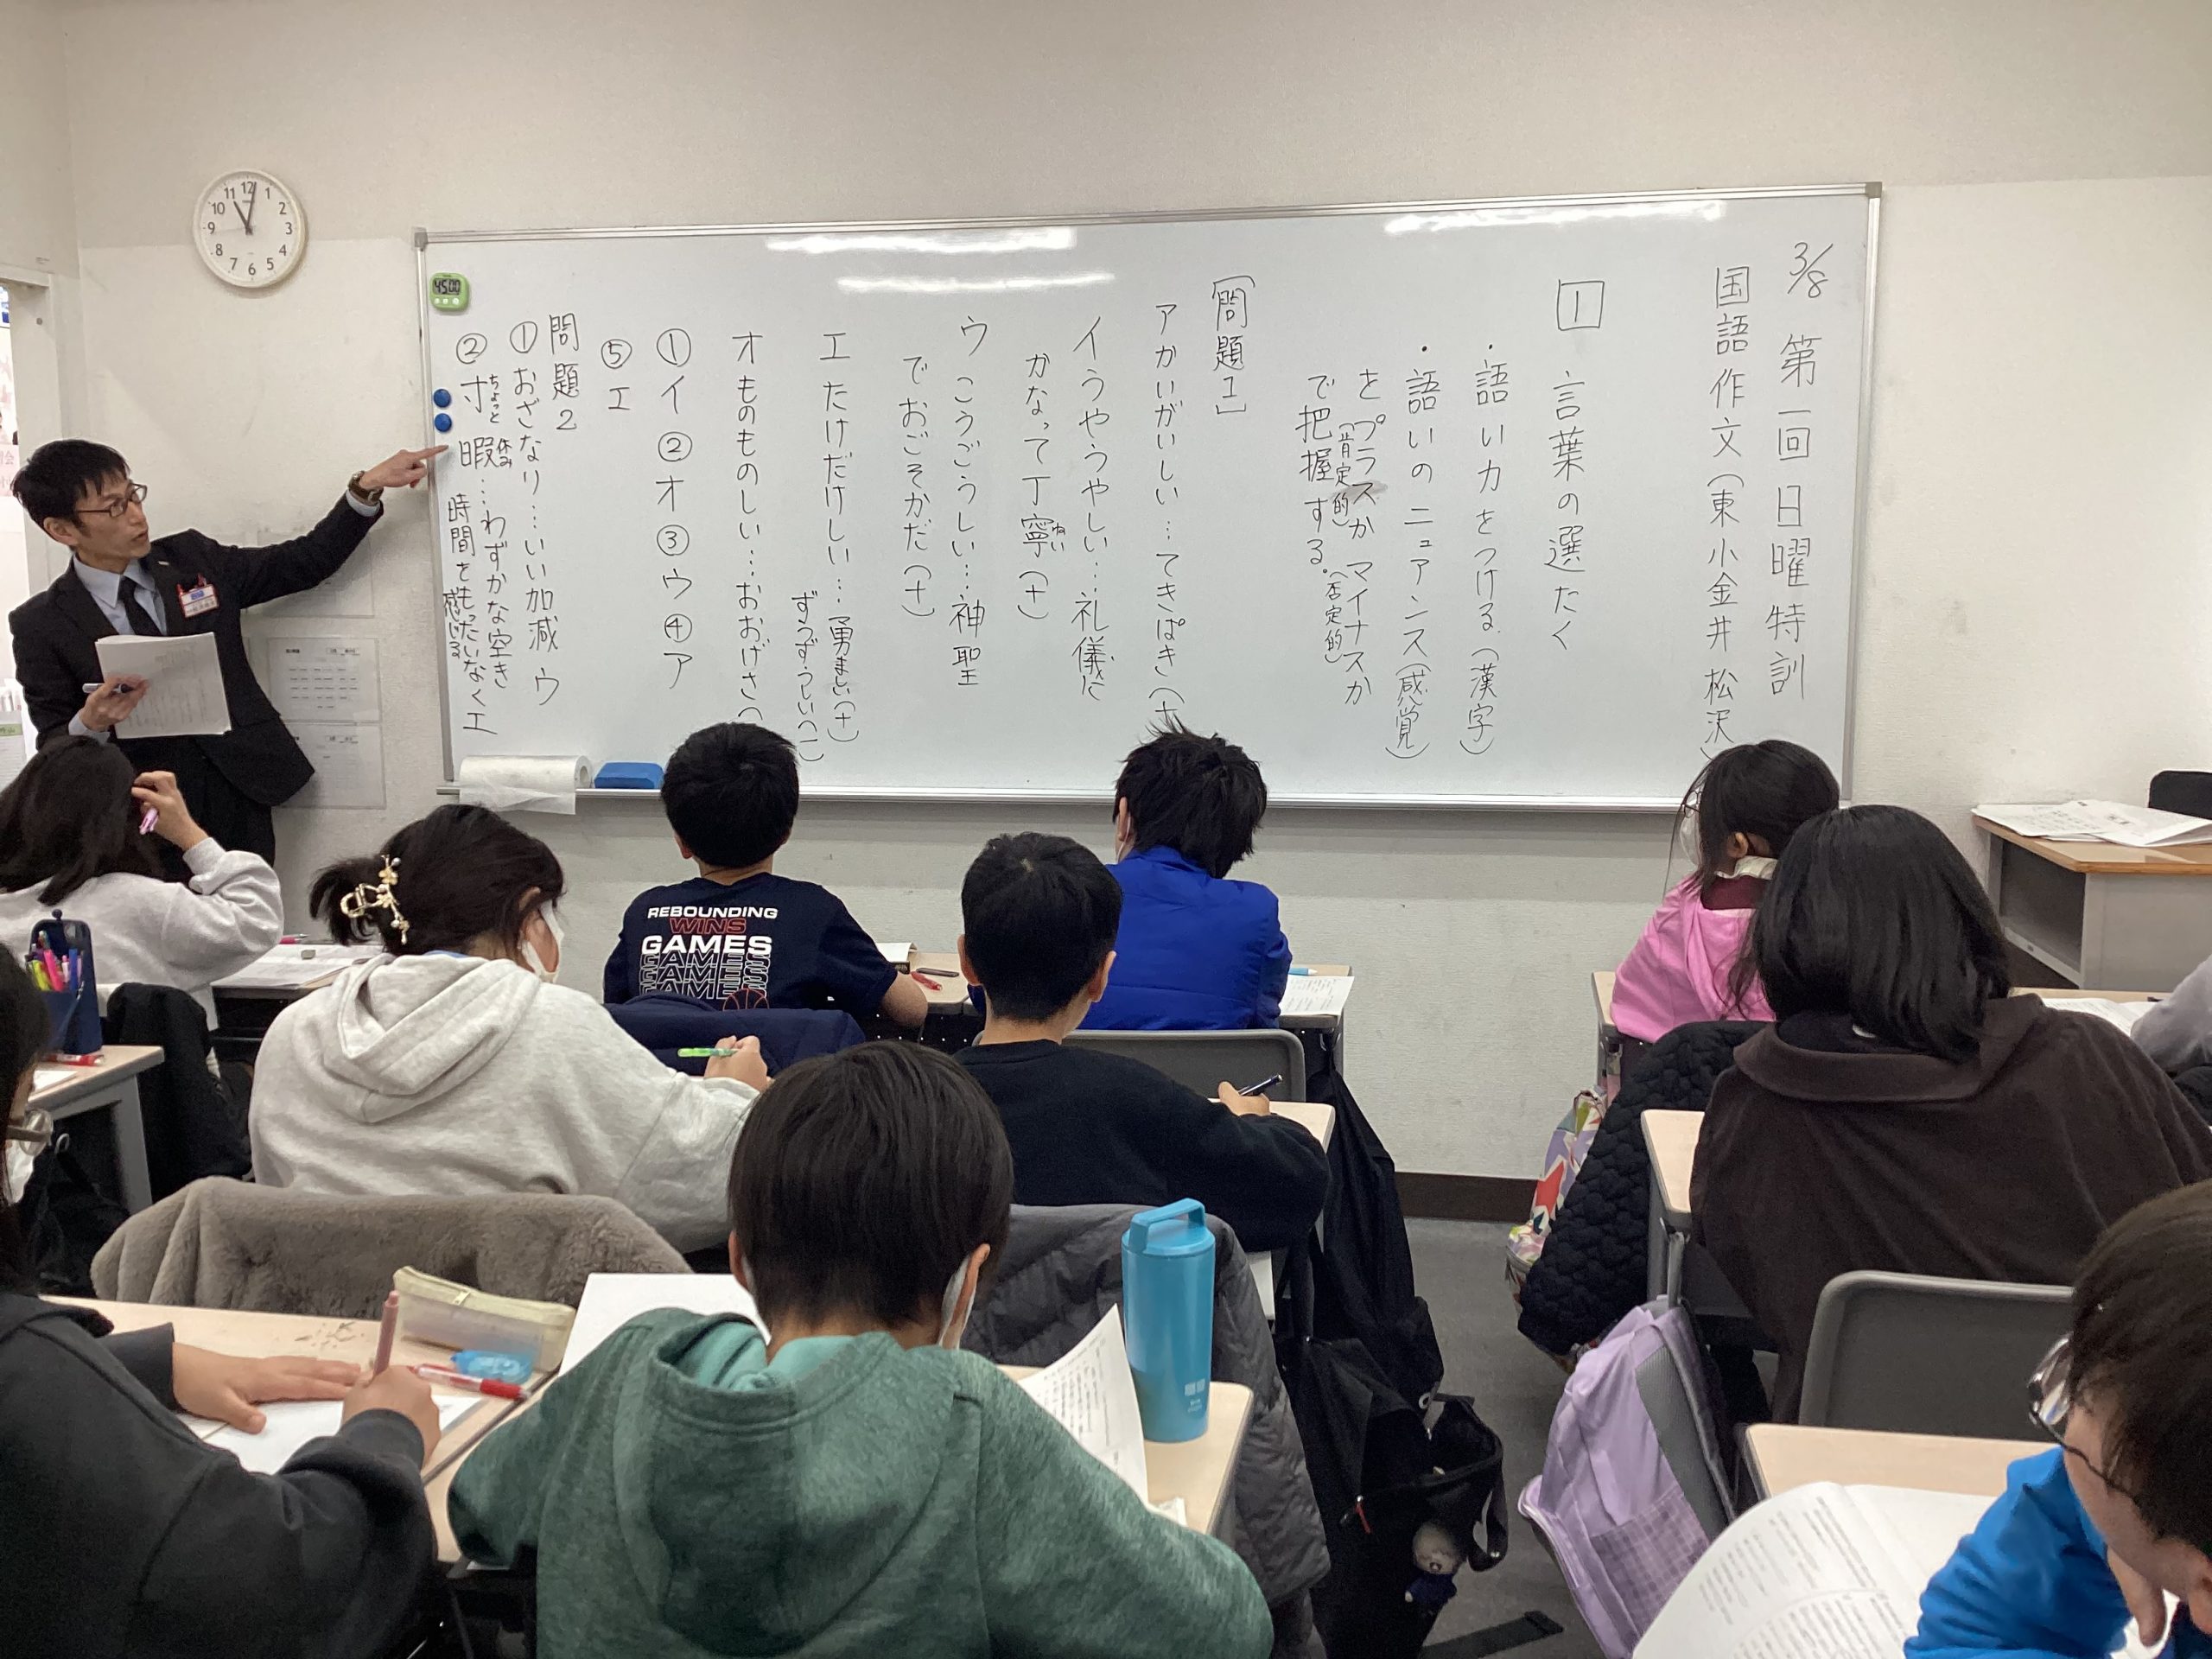 3/8 第一回 日曜特訓
国語作文(東小金井 松沢)
1 言葉の選たく
・語い力をつける(漢字)
・語いのニュアンス(感覚)
をプラスか マイナスか
(肯定的) (否定的)
で把握する。
〔問題1〕
ア かいがいしい…てきぱき(+
イ うやうやしい…礼儀に
かなって丁寧(+)
ねい
ウ こうごうしい…神聖
でおごそかだ(+)
エ たけだけしい…勇ましい(+)
ずうずうしい(-)
オ ものものしい…おおげさ(
① イ ② オ ③ ウ ④ ア
⑤ エ
問題2
① おざなり…いい加減 ウ
② 寸暇…わずかな空き
ちょっと
時間をもったいなく エ
感じる
45:00
11 12 1
10 2
9 3
8 4
7 6 5
REBOUNDING
WINS
GAMES
GAMES
GAMES
GAMES